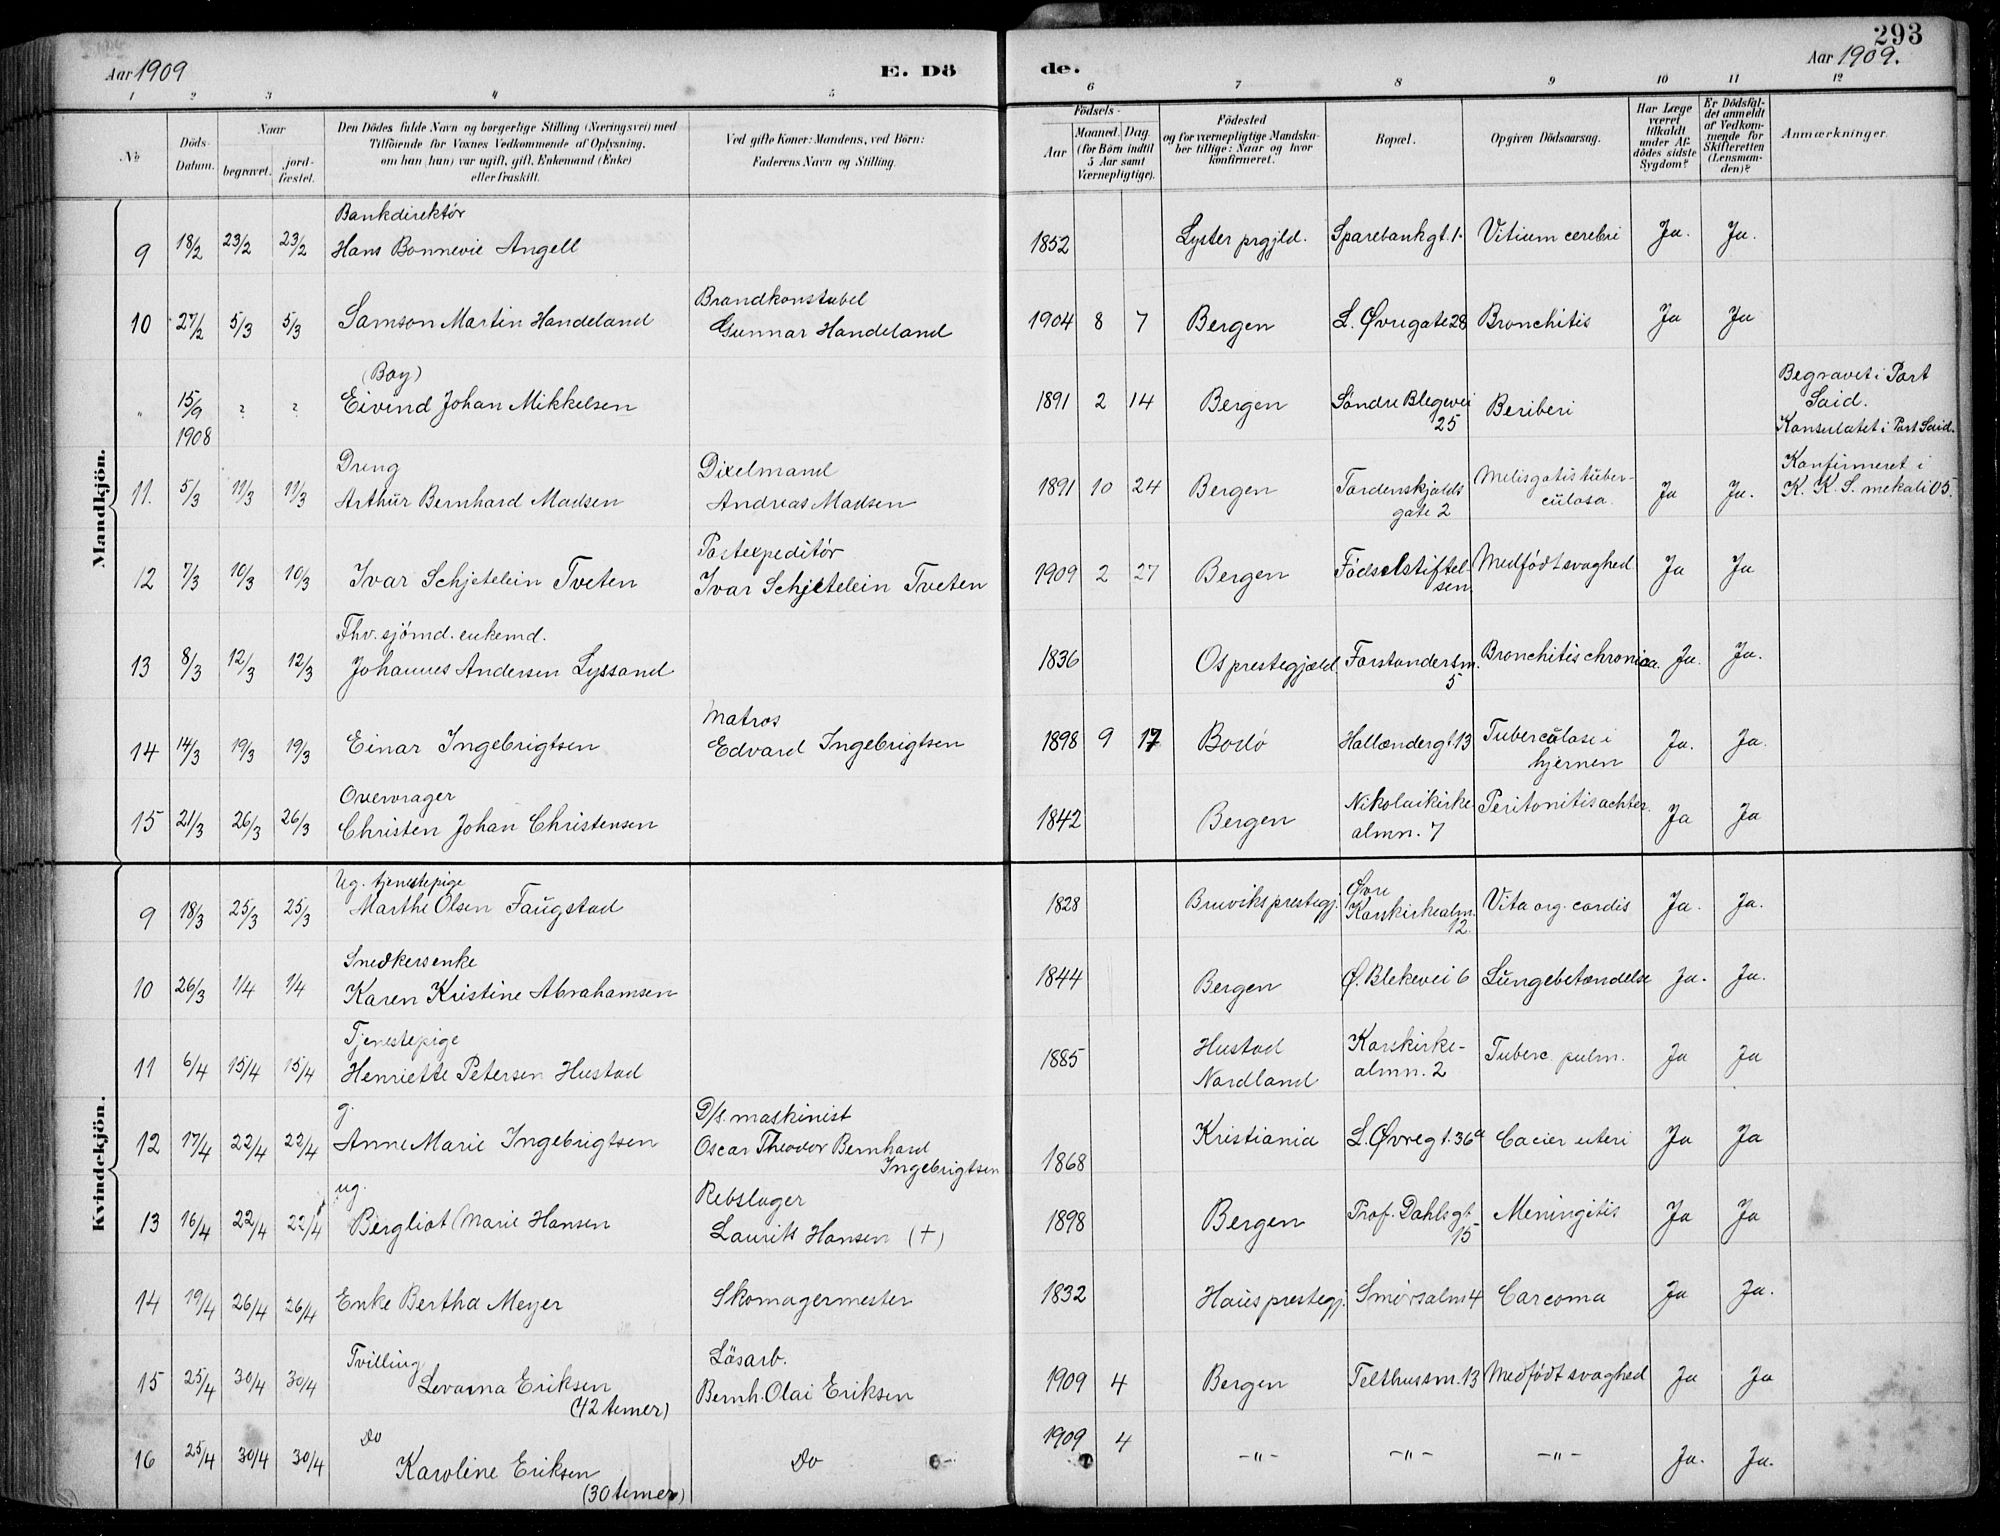 293
Aar 1909
E. Dö
de.
Aar 1909.
1 2 3 4 5 6 7 8 9 10 11 12
No
Döds-Datum.
Naar
begravet.
jord-fæstet.
Den Dödes fulde Navn og borgerlige Stilling (Næringsvei) med
Tilföiende for Voxnes Vedkommende af Oplysning,
om han (hun) var ugift, gift, Enkemand (Enke)
eller fraskilt.
Ved gifte Koner: Mandens, ved Börn:
Faderens Navn og Stilling.
Födsels-
Aar
Maaned. Dag.
(for Börn indtil
5 Aar samt
Værnepligtige).
Födested
og for værnepligtige Mandska-
ber tillige: Naar og hvor
konfirmeret.
Bopæl.
Opgiven Dödsaarsag.
Har Læge
været
tilkaldt
under Af-
dödes sidste
Sygdom?
Er Dödsfal-
det anmeldt
af Vedkom-
mende for
Skifteretten
(Lensman-
den)?
Anmærkninger.
Mandkjön.
Bankdirektör
9 18/2 23/2 23/2 Hans Bonnevie Angell 1852 Lyster prgjld. Sparebankgt. 1. Vitium cerebri Ja. Ja.
Brandkonstabel
10 27/2 5/3 5/3 Samson Martin Handeland Gunnar Handeland 1904 8 7 Bergen L. Øvregate 28 Bronchitis Ja Ja
(Boy)
" 15/9 1908 ? ? Eivind Johan Mikkelsen 1891 2 14 Bergen Söndre Blegevei 25 Beriberi
Begravet i Port
Said.
Konsulatet i Port Said.
Dreng Dixelmand
11. 5/3 11/3 11/3 Arthur Bernhard Madsen Andreas Madsen 1891 10 24 Bergen Tordenskjolds gate 2 Ja Ja.
Konfirmeret i
K. K. S.
Postexpeditör
12 7/3 10/3 10/3 Ivar Schjetelein Tveten Ivar Schjetelein Tveten 1909 2 27 Bergen Födselstiftelsen Medfödt svaghed Ja Ja
Fhv. sjömd. enkemd.
13 8/3 12/3 12/3 Johannes Andersen Lyssand 1836 Os prestegjæld. Forstandersm. 5 Bronchitis chronica. Ja. Ja.
Matros
14 14/3 19/3 19/3 Einar Ingebrigtsen Edvard Ingebrigtsen 1898 9 17 Bodö Hollændergt. 13 Tuberculose i hjernen Ja. Ja.
Overvrager
15 21/3 26/3 26/3 Christen Johan Christensen 1842 Bergen Nikolaikirke almn. 7 Peritonitis Ja Ja
Kvindekjön.
Ug. tjenestepige
9 18/3 25/3 25/3 Marthe Olsen Faugstad 1828 Bruviks prestegj. Øvre Korskirkealm. 12. Vita org. cordis Ja. Ja.
Snedkersenke
10 26/3 1/4 1/4 Karen Kristine Abrahamsen 1844 Bergen Ø. Blekevei 6 Lungebetændelse Ja. Ja.
Tjenestepige
11 6/4 15/4 15/4 Henriette Petersen Hustad 1885 Hustad Nordland Korskirke-almn. 2 Tuberc. pulm. Ja Ja
g. D/s. maskinist
12 17/4 22/4 22/4 Anne Marie Ingebrigtsen Oscar Theodor Bernhard Ingebrigtsen 1868 Kristiania L. Øvregt. 36a uteri Ja Ja
ug. Rebslager
13 16/4 22/4 22/4 Bergliot Marie Hansen Laurits Hansen (+) 1898 Bergen Prof. Dahlsgt. 15 Meningitis Ja Ja
14 19/4 26/4 26/4 Enke Bertha Meyer Skomagermester 1832 Haus prestegj. Smörsalm 4 Carcoma Ja Ja.
Tvilling Lösarb.
15 25/4 30/4 30/4 Levarna Eriksen (42 timer) Bernh. Olai Eriksen 1909 4 Bergen Telthussm. 13 Medfödt svaghed Ja Ja
Do
16 25/4 30/4 30/4 Karoline Eriksen (30 timer) Do 1909 4 -"- -"- -"- Ja. Ja.